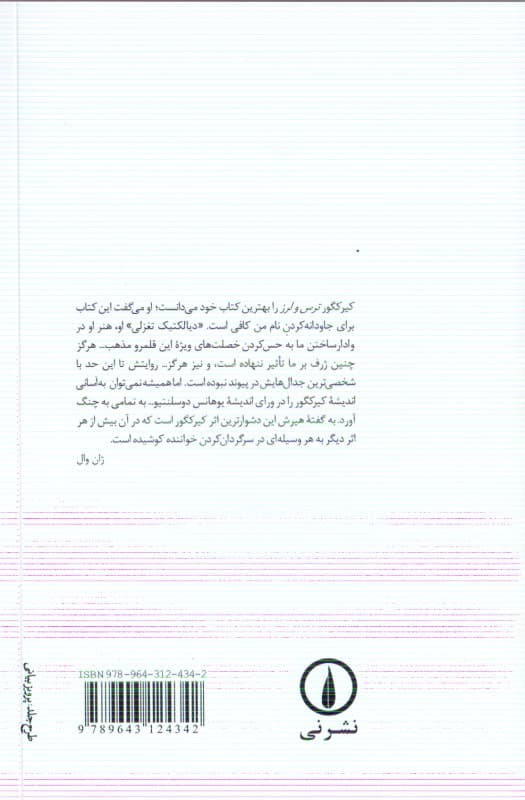 کیرکگور ترس و لرز را بهترین کتاب خود می‌دانست؛ او می‌گفت این کتاب
برای جاودانه‌کردن نام من کافی است. «دیالکتیک تغزلی» او، هنر او در
وادارساختن ما به حس‌کردن خصلت‌های ویژهٔ این قلمرو مذهب... هرگز
چنین ژرف بر ما تأثیر ننهاده است، و نیز هرگز... روایتش تا این حد با
شخصی‌ترین جدال‌هایش در پیوند نبوده است. اما همیشه نمی‌توان به‌آسانی
اندیشهٔ کیرکگور را در ورای اندیشهٔ یوهانس دوسلنتیو... به تمامی به چنگ
آورد. به گفتهٔ هیرش این دشوارترین اثر کیرکگور است که در آن بیش از هر
اثر دیگر به هر وسیله‌ای در سرگردان‌کردن خواننده کوشیده است.
ژان وال
ISBN 978-964-312-434-2
9 789643 124342
نشرنی
طرح جلد: پرویز بیانی